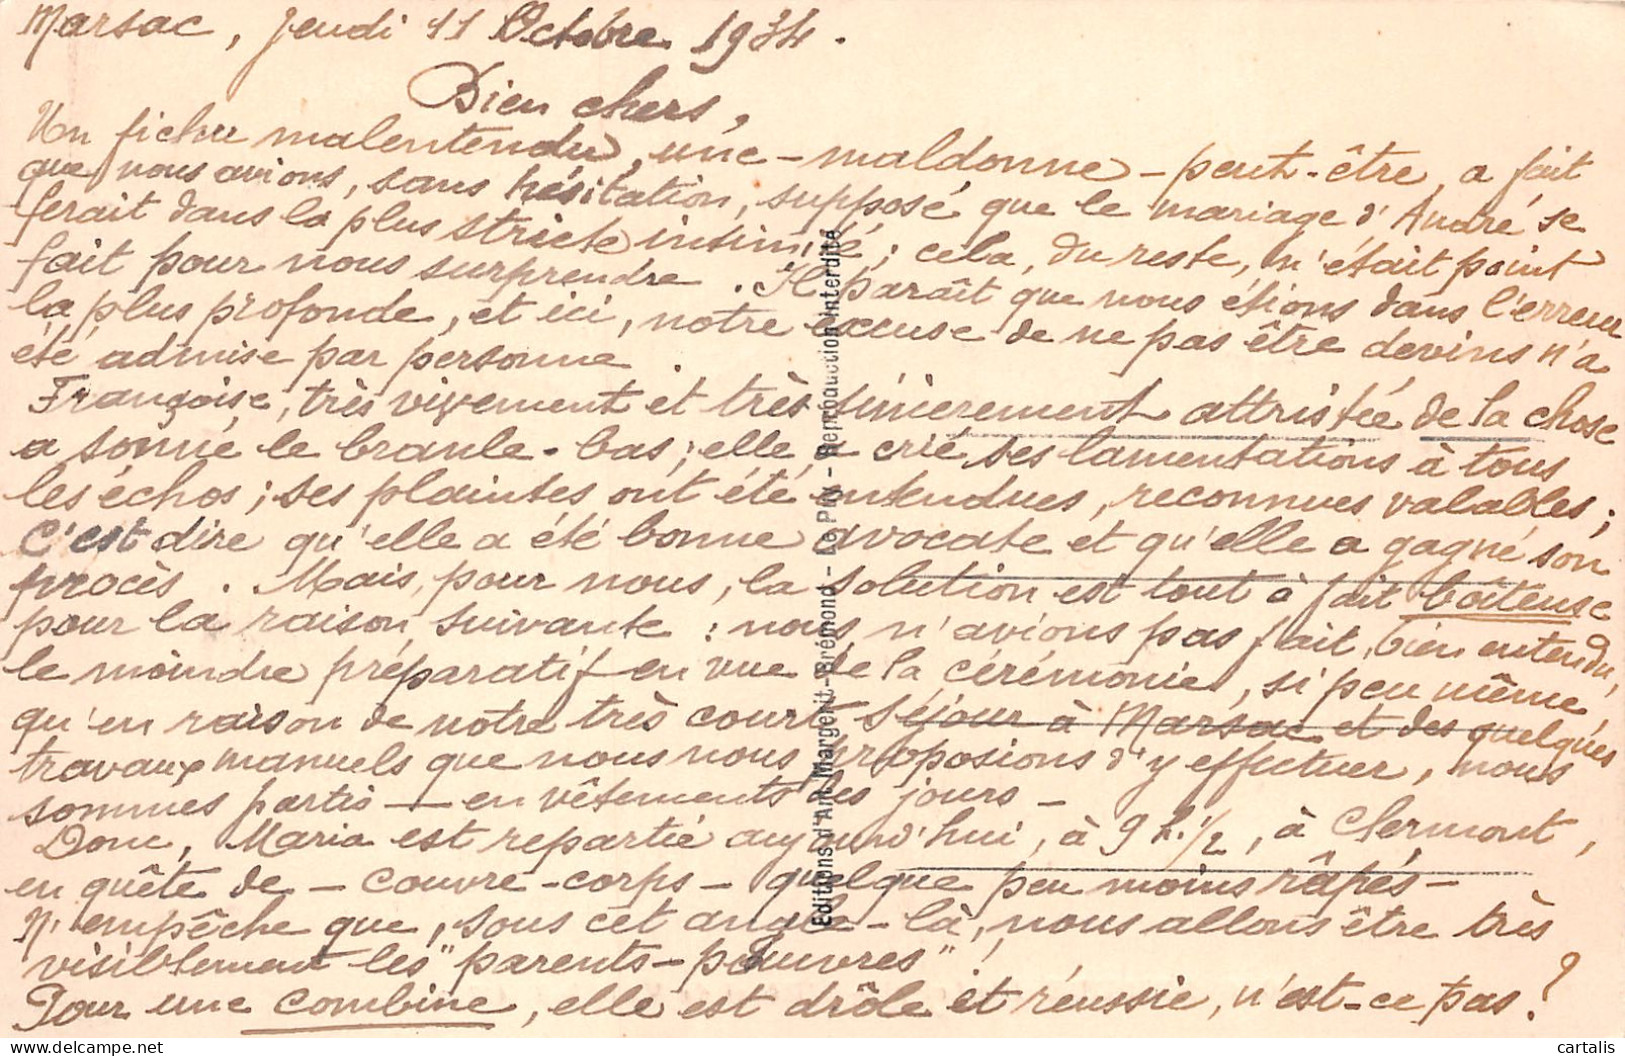 Marsac, Jeudi 11 Octobre 1934.
Bien chers,
Un fichu malentendu, une - maldonne - peut-être, a fait
que nous avions, sans hésitation, supposé que le mariage d'André se
ferait dans la plus stricte intimité ; cela, du reste, n'était point
fait pour nous surprendre. Il paraît que nous étions dans l'erreur
la plus profonde, et ici, notre excuse de ne pas être devins n'a
été admise par personne.
Françoise, très vivement et très sincèrement attristée de la chose
a sonné le branle-bas ; elle a crié ses lamentations à tous
les échos ; ses plaintes ont été entendues, reconnues valables ;
C'est dire qu'elle a été bonne avocate et qu'elle a gagné son
procès. Mais, pour nous, la solution est tout à fait boiteuse
pour la raison suivante : nous n'avions pas fait, bien entendu,
le moindre préparatif en vue de la cérémonie, si peu même
qu'en raison de notre très court séjour à Marsac et des quelques
travaux manuels que nous nous proposions d'y effectuer, nous
sommes partis — en vêtements des jours -
Donc, Maria est repartie aujourd'hui, à 9 h. 1/2, à Clermont,
en quête de - couvre-corps - quelque peu moins râpés -
N'empêche que, sous cet angle-là, nous allons être très
visiblement les "parents-pauvres" !
Pour une combine, elle est drôle et réussie, n'est-ce pas ?
Editions d'Art Margerit-Brémond - Le Puy - Reproduction interdite
cartalis